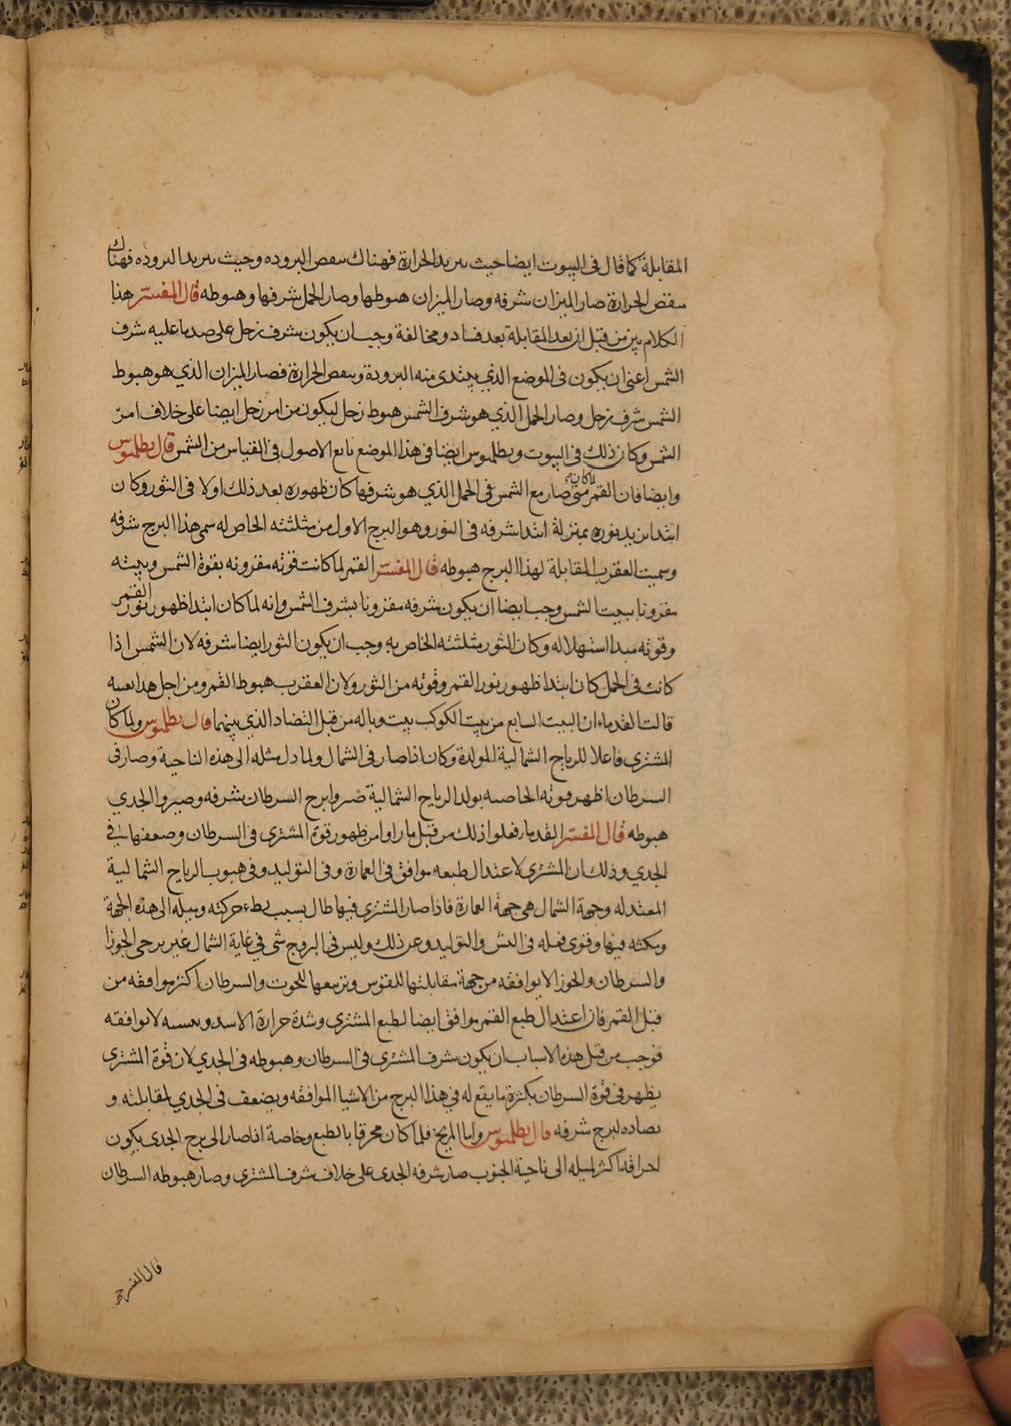 المقابلة كما قال فى البيوت ايضا حيث يريد الحرارة فهناك ينقص البروده وحيث يريد البروده فهناك
ينقص الحرارة صار الميزان شرفه وصار الميزان هبوطها وصار الحمل شرفها وهبوطه قال المفسر هذا
الكلام بين من قبل ان بعد المقابلة بعد فساد ومخالفة وجب ان يكون شرف زحل على ضد ما عليه شرف
الشمس اعنى ان يكون فى الموضع الذي يبتدى منه البرودة وينقص الحرارة فصار الميزان الذي هو هبوط
الشمس شرف زحل وصار الحمل الذي هو شرف الشمس هبوط زحل ليكون من امر زحل ايضا على خلاف امر
الشمس وكان ذلك فى البيوت وبطلميوس ايضا فى هذا الموضع تابع الاصول فى القياس من الشمس قال بطلميوس
وايضا فان القمر لما كان متى صار مع الشمس فى الحمل الذي هو شرفها كان ظهوره بعد ذلك اولا فى الثور وكان
ابتدا تزيد نوره بمنزلة ابتدا شرفه فى الثور وهو البرج الاول من مثلثته الخاص له سمى هذا البرج شرفه
وسميت العقرب المقابلة لهذا البرج هبوطه قال المفسر القمر لما كانت قوته مقرونه بقوة الشمس وبيته
مقرونا ببيت الشمس وجب ايضا ان يكون شرفه مقرونا بشرف الشمس وانه لما كان ابتدا ظهور نور القمر
وقوته مبدا استهلاله وكان الثور مثلثته الخاص به وجب ان يكون الثور ايضا شرفه لان الشمس اذا
كانت فى الحمل كان ابتدا ظهور نور القمر وقوته من الثور ولان العقرب هبوط القمر ومن اجل هذا بعينه
قالت القدماء ان البيت السابع من بيت الكوكب بيت وباله من قبل التضاد الذي بينهما قال بطلميوس ولما كان
المشتري فاعلا للرياح الشمالية المولدة وكان اذا صار فى الشمال ولما دل مثله الى هذه الناحية وصار فى
السرطان اظهر قوته الخاصيه بولد الرياح الشمالية صيروا برج السرطان شرفه وصيروا الجدي
هبوطه قال المفسر القدماء فعلوا ذلك من قبل ما راوا من ظهور قوة المشتري فى السرطان وضعفها فى
الجدي وذلك ان المشتري لاعتدال طبعه موافق فى العمارة وفى التوليد وفى هبوب الرياح الشمالية
المعتدله وجهة الشمال هى جهة العمارة فاذا صار المشتري فيها طال بسبب بطء حركته وميله الى هذه الجهة
ومكثه فيها وقوى فعله فى النش والتوليد وعر ذلك وليس فى البروج شى فى غاية الشمال غير برجى الجوزا
والسرطان والجوزا لا يوافقه من جهة مقابلتها للقوس وتربيعها للحوت والسرطان اكثر موافقه من
قبل القمر فان اعتدال طبع القمر موافق ايضا لطبع المشتري وشدة حرارة الاسد ويبسه لا توافقه
فوجب من قبل هذه الاسباب ان يكون شرف المشترى فى السرطان وهبوطه فى الجدي لان قوة المشترى
يظهر فى قوة السرطان بكثرة ما يقع له فى هذا البرج من الاشيا الموافقه ويضعف فى الجدي لمقابلته و
تضاده لبرج شرفه قال بطلميوس واما المريخ فلما كان محرقا بالطبع وخاصة اذا صار الى برج الجدى يكون
احراقه اكثر لميله الى ناحية الجنوب صار شرفه الجدى على خلاف شرف المشترى وصار هبوطه السرطان
قال المفسر